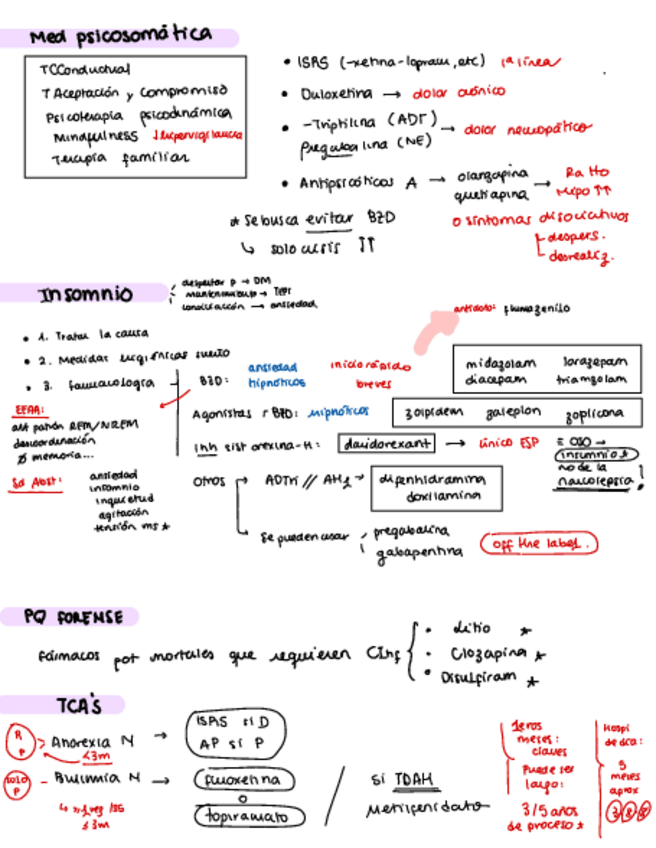 Med psicosomática
TCConductual
T Aceptación y compromiso
Psicoterapia psicodinámica
Mindfulness ↓hipervigilancia
Terapia familiar
• ISRS (-xetina-lopram, etc) 1ª línea
• Duloxetina → dolor crónico
• -Triptilina (ADT)
Pregabalina (NE) → dolor neuropático
• Antipsicóticos A → olanzapina
quetiapina →
↑↑
o síntomas disociativos
despers.
desrealiz.
* Se busca evitar BZD
↳ solo crisis ↑↑
Insomnio
despertar p → DM
mantenimiento →
conciliación → ansiedad
• 1. Tratar la causa
• 2. Medidas higiénicas sueño
• 3. farmacología
antídoto: flumazenilo
BZD: ansiedad
hipnóticos
inicio rápido
breves
midazolam lorazepam
diacepam triamzolam
Agonistas r BZD: hipnóticos
zolpidem zaleplon zoplicona
Inh sist orexina-H: daridorexant → único ESP
insomnio *
no de la
narcolepsia!
Otros → ADTri // AH1 → difenhidramina
doxilamina
→ Se pueden usar pregabalina
gabapentina
off the label.
EEAA:
alt patrón REM/NREM
descoordinación
∅ memoria...
Sd Abst: ansiedad
insomnio
inquietud
agitación
tensión ms *
PQ FORENSE
Fármacos pot mortales que requieren CInf
• Litio *
• Clozapina *
• Disulfiram *
TCA'S
R
P
Anorexia N →
≤3m
ISRS si D
AP si P
solo
P
- Bulimia N →
fluoxetina
o
topiramato
≤3m
/ si TDAH
Metilfenidato
1eros
meses:
claves
Puede ser
largo:
3/5 años
de proceso *
Hospi
de dca:
5
meses
aprox